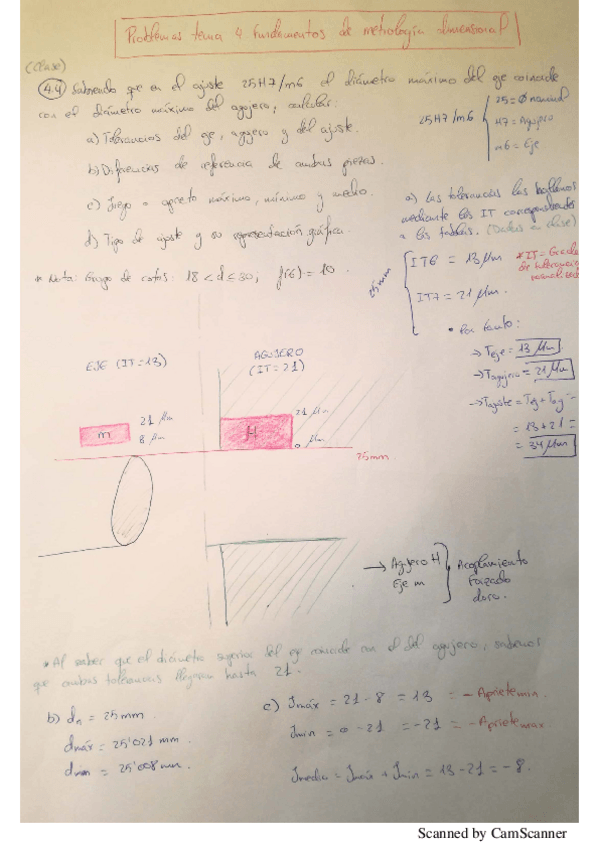 Problemas tema 4 Fundamentos de metrología dimensional
(Clase)
4.4 Sabiendo que en el ajuste 25H7/m6 el diámetro máximo del eje coincide
con el diámetro máximo del agujero, calcular:
a) Tolerancias del eje, agujero y del ajuste.
b) Diferencias de referencia de ambas piezas.
c) Juego o aprieto máximo, mínimo y medio.
d) Tipo de ajuste y su representación gráfica.
* Nota: Grupo de cotas: 18 < d ≤ 30, f(6) = 10.
25H7/m6
25 = Ø nominal
H7 = Agujero
m6 = Eje
a) Las tolerancias las hallamos
mediante los IT correspondientes
a las tablas. (Dadas en clase)
25mm
IT6 = 13 μm
IT7 = 21 μm.
* IT = Grado
de tolerancia
normalizado
• Por tanto:
→ Teje = 13 μm
→ Tagujero = 21 μm
→ Tajuste = Tej + Tag =
= 13 + 21 =
= 34 μm
EJE (IT=13)
AGUJERO
(IT=21)
m
21 μm
8 μm
H
21 μm
0 μm
25mm
→ Agujero H
Eje m
Acoplamiento
forzado
duro.
* Al saber que el diámetro superior del eje coincide con el del agujero, sabemos
que ambas tolerancias llegaran hasta 21.
b) dn = 25mm
dmáx = 25'021 mm.
dmín = 25'008 mm.
c) Jmáx = 21 - 8 = 13 = - Aprietemin.
Jmin = 0 - 21 = -21 = - Aprietemax
Jmedio = Jmáx + Jmin = 13 - 21 = -8.
Scanned by CamScanner